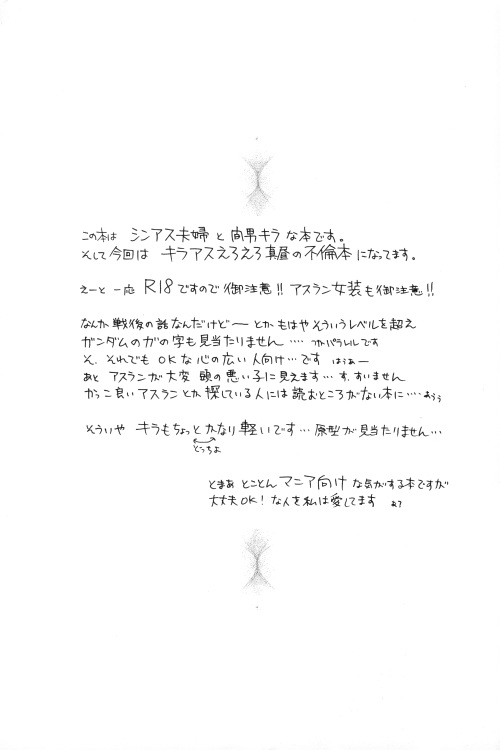 この本は シンアス夫婦 と 間男キラ な本です。
そして今回は キラアスえろえろ真昼の不倫本 になってます。
えーと 一応 R18ですので御注意!! アスラン女装も御注意!!
なんか戦後の話なんだけどー とかもはやそういうレベルを超え
ガンダムのガの字も見当たりません‥‥ つかパラレルです
そ、それでもOKな心の広い人向け…です はうあー
あと アスランが大変 頭の悪い子に見えます… す、すいません
かっこ良いアスランとか探している人には読むところがない本に‥‥ あうぅ
そういや キラもちょっとかなり軽いです… 原型が見当たりません…
どっちよ
とまあ とことんマニア向けな気がする本ですが
大丈夫OK!な人を私は愛してます